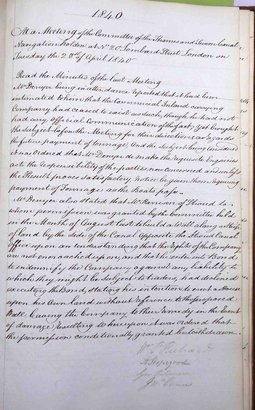 1840
At a Meeting of the Committee of the Thames and Severn Canal
Navigation Holden at No 20 Lombard Street London on
Tuesday the 28th of April 1840
Read the Minutes of the last Meeting
Mr Denyer being in attendance reported that it had been
intimated to him that the Commercial Inland carrying
Company had ceased to carry as such, though he had not
had any Official Communication of the fact, yet brought
the subject before the Meeting for their direction as to
the future payment of tonnage. And the subject being considered
it was Ordered that Mr Denyer do make the requisite Enquiries
as to the responsibility of the parties now concerned and unless
the Result proves satisfactory Notice be given them requiring
payment of Tonnage as the Boats pass
Mr Denyer also stated that Mr of Stroud to
whom permission was granted by the Committee held
in the Month of August last to build a Wall along a Strip
of land by the side of the Canal opposite the Stroud
Office upon an understanding that the rights of the Company
are not encroached upon, and that he enters into Bond
to indemnify the Company against any liability to
which they might be subject to traders, had declined
executing the Bond, stating his intention to erect a House
upon his own land without reference to the proposed
Wall leaving the Company to their remedy in the Event
of damage resulting Whereupon it was Ordered that
the permission conditionally granted be withdrawn